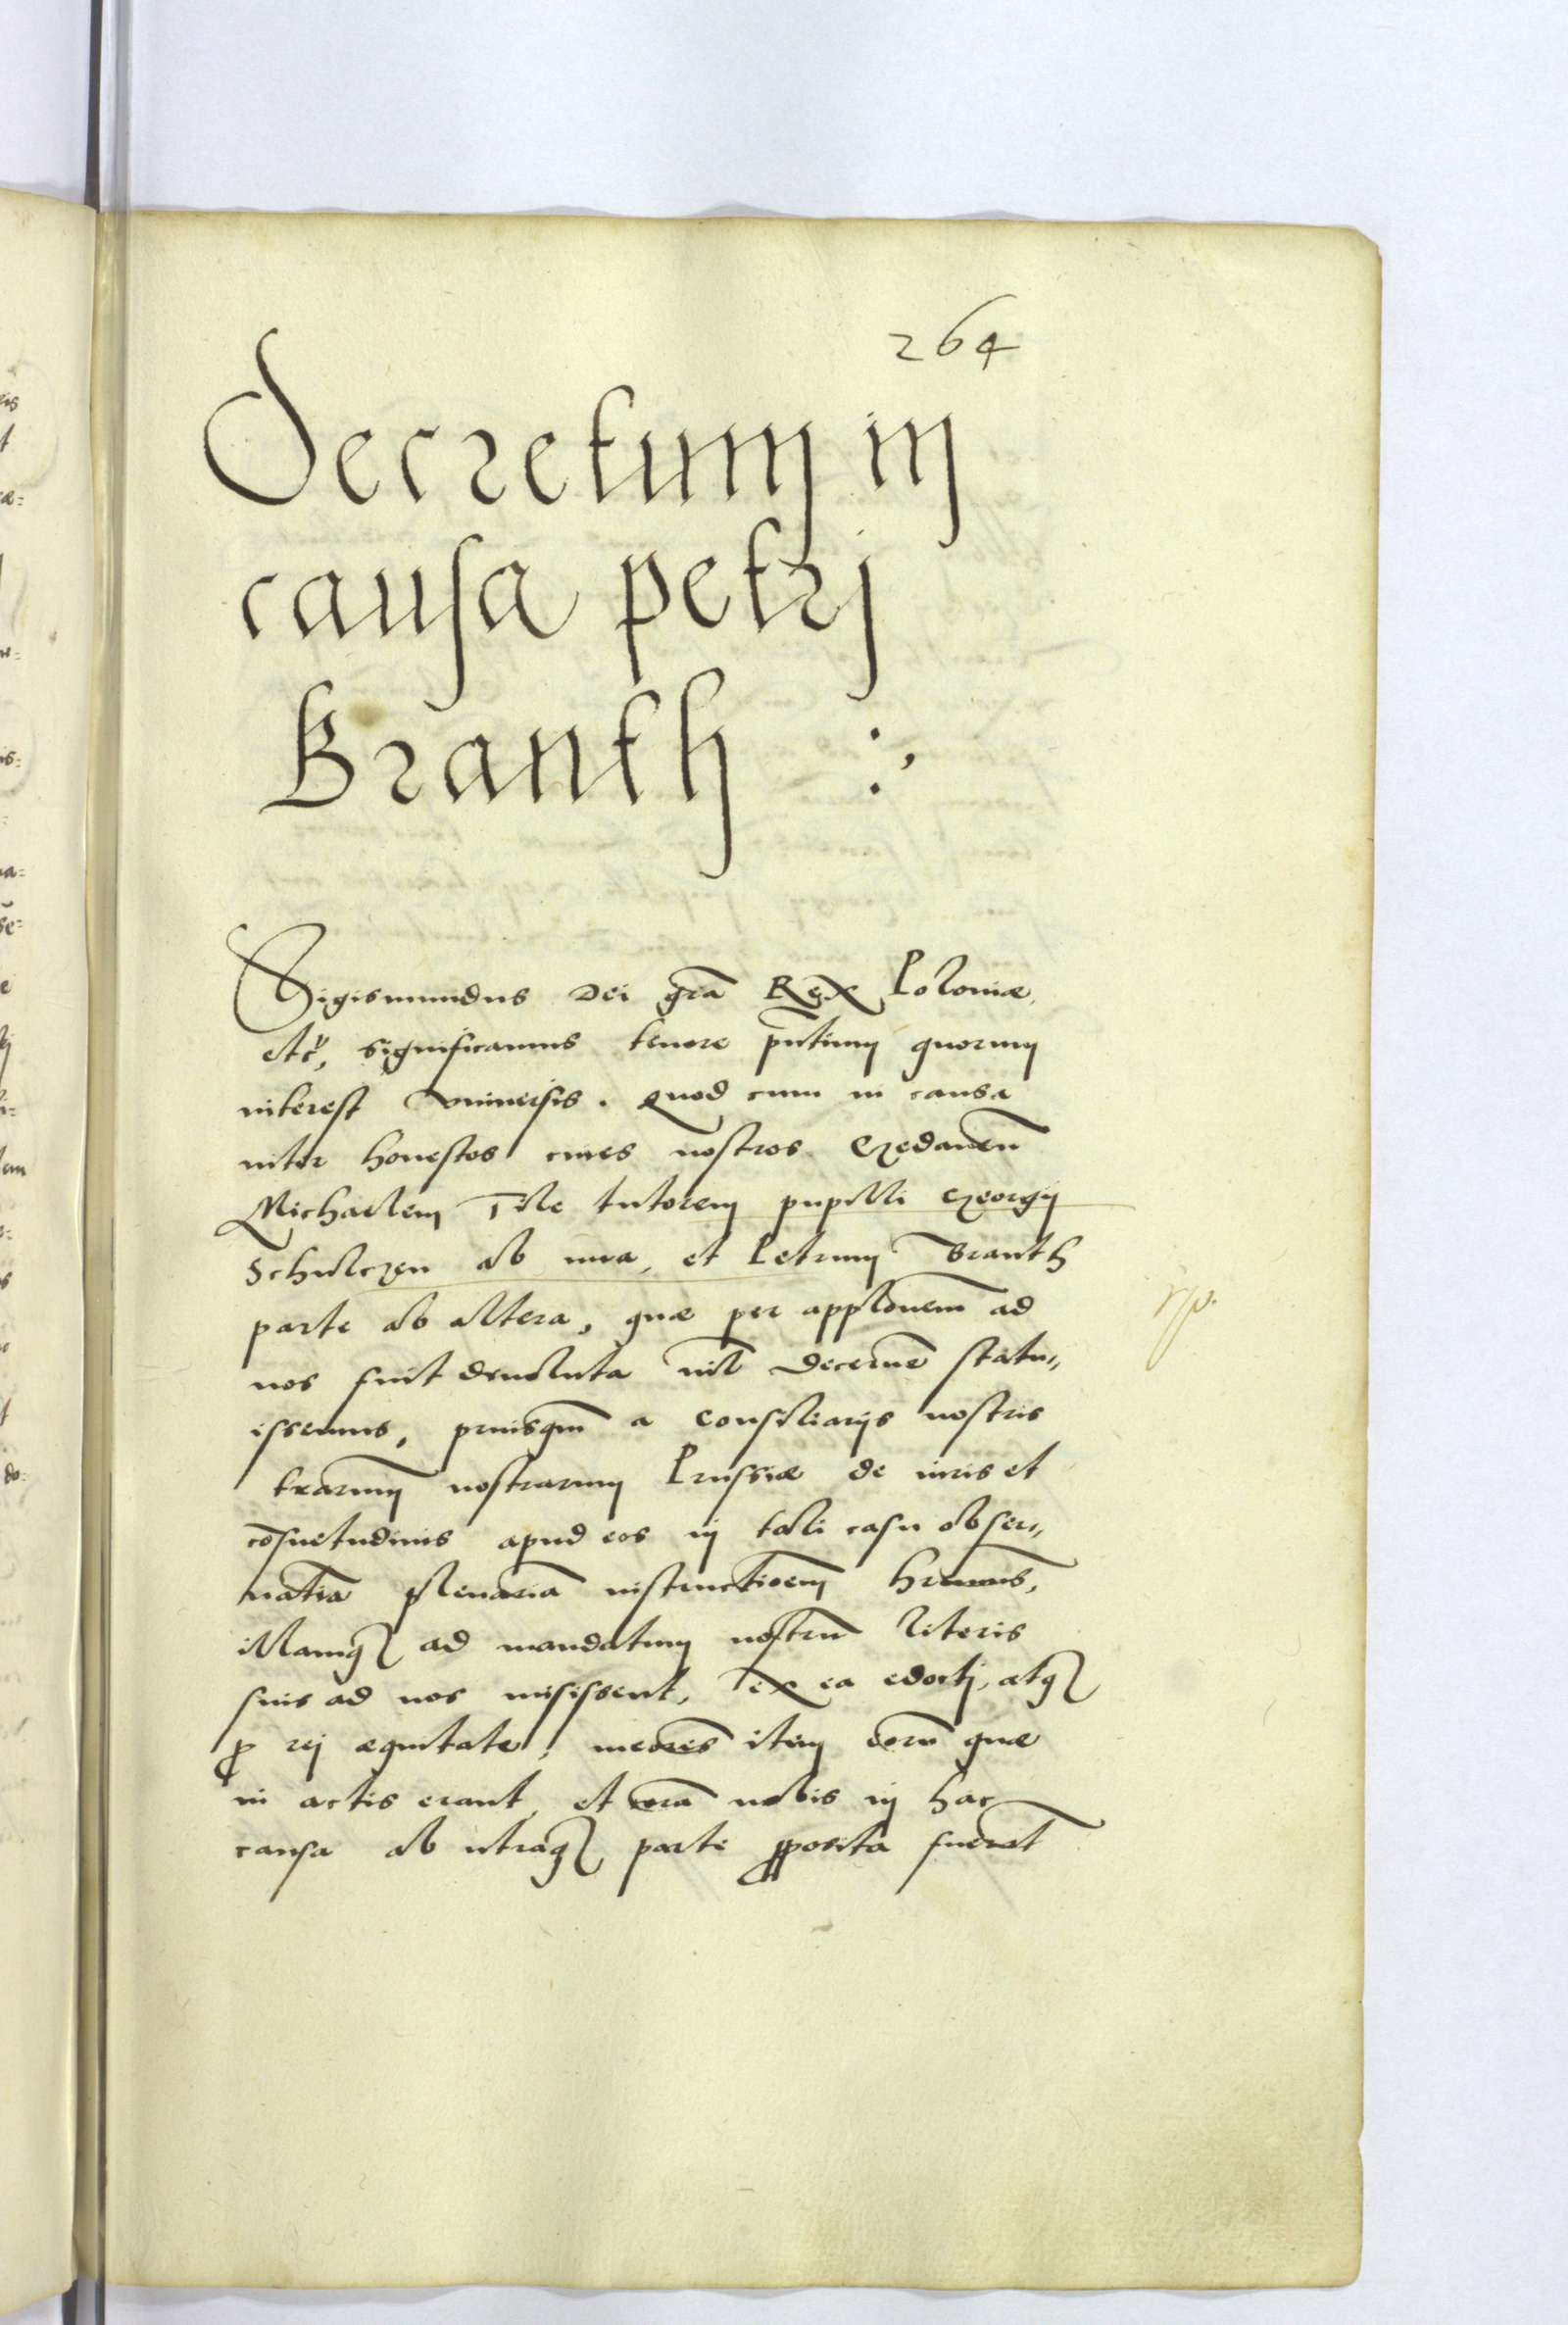 264
Decretum in
causa petrj
Branth :,
Sigismundus Dei gr̃a Rex Poloniæ
etc̃, significamus tenore pn̄tium quorum
interest vniuersis. Quod cum in causa
inter honestos ciues nostros Gedaneñ
Michaelem Tile tutorem pupilli Georgij
Schulczen ab vna, et Petrum Branth
parte ab altera, quæ per applõnem ad
nos fuit deuoluta nil̃ decerne͂ statu„
issemus, priusqm̃ a consiliarijs nostris
trarum̃ nostrarum Prussiæ de iuris et
cõsuetudinis apud eos in tali casu obser„
natia͂ plenaria͂ instructioem̃ hremus͂,
illamq ad mandatum nostru͂ literis
suis ad nos misissent, ex ea edocti, atq
ꝓ rej æquitate, meores͂ item eoru͂ quæ
in actis erant, et cora͂ nobis in hac
causa ab utraq parte ꝓposita fuera͂t